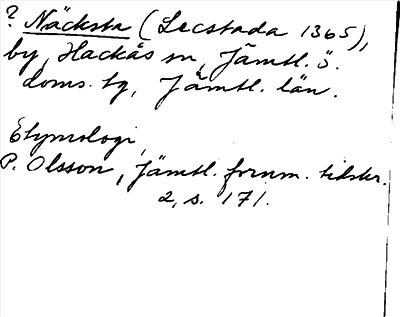 ? Näcksta (Lecstada 1365),
by, Hackås sn, Jämtl. ö.
doms. tg, Jämtl. län.
Etymologi,
P. Olsson, Jämtl. fornm. tidskr.
2, s. 171.